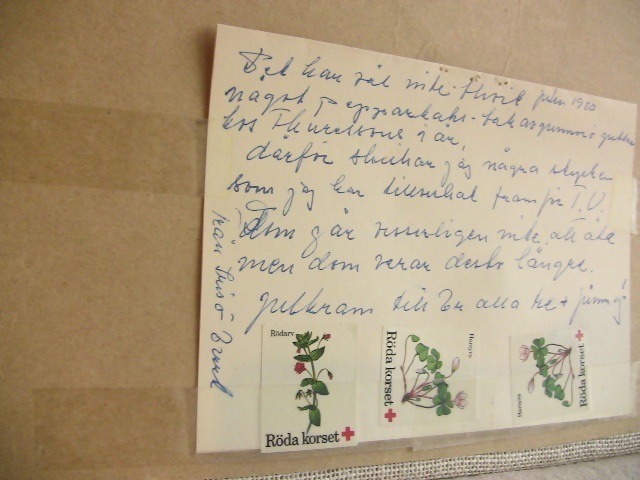 Det har väl inte blivit
julen 1980
något pepparkaks-bak
hos Thuressons i år,
därför skickar jag några stycken
som jag har tillverkat framför T.V.
Dom går visserligen inte att äta
men dom varar desto längre.
Julkram till Er alla tre +
Rödarv
Röda korset
Röda korset
Harsyra
Harsyra
Röda korset